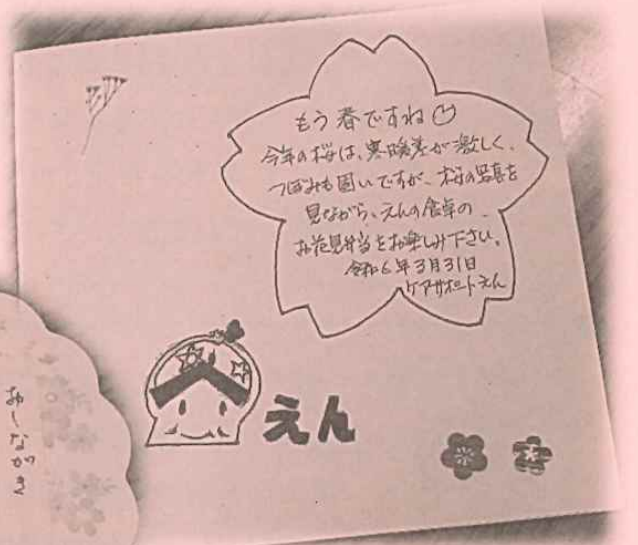 もう春ですね
今年の桜は、寒暖差が激しく、
つぼみも固いですが、桜の写真を
見ながら、えんの食卓の
お花見弁当をお楽しみ下さい。
令和6年3月31日
ケアサポートえん
えん
おしながき